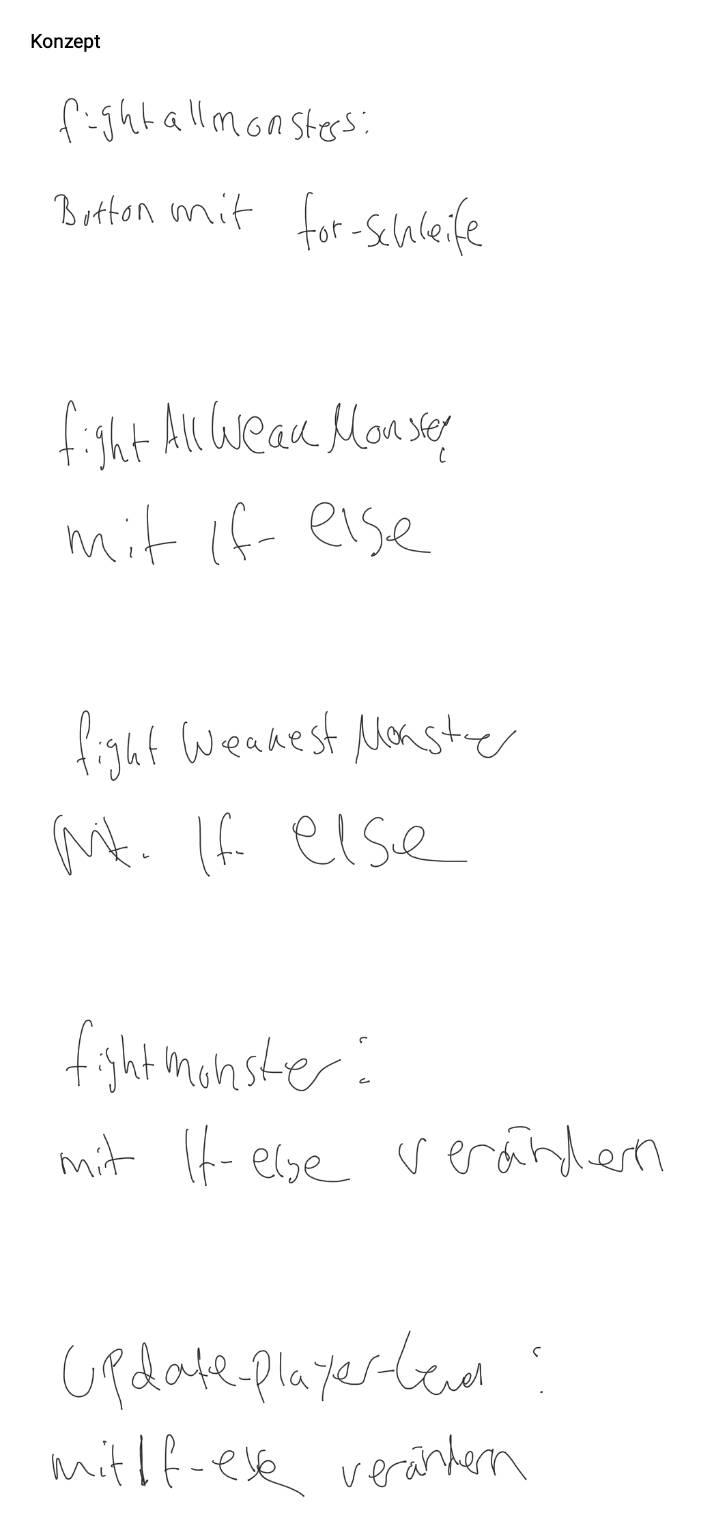 Konzept
fightallmonsters:
Button mit for-schleife
fightAllWeakMonster
mit If- else
fight Weakest Monster
Mit. If- else
fightmonster:
mit If-else verändern
Update-player-level :
mit If-else verändern